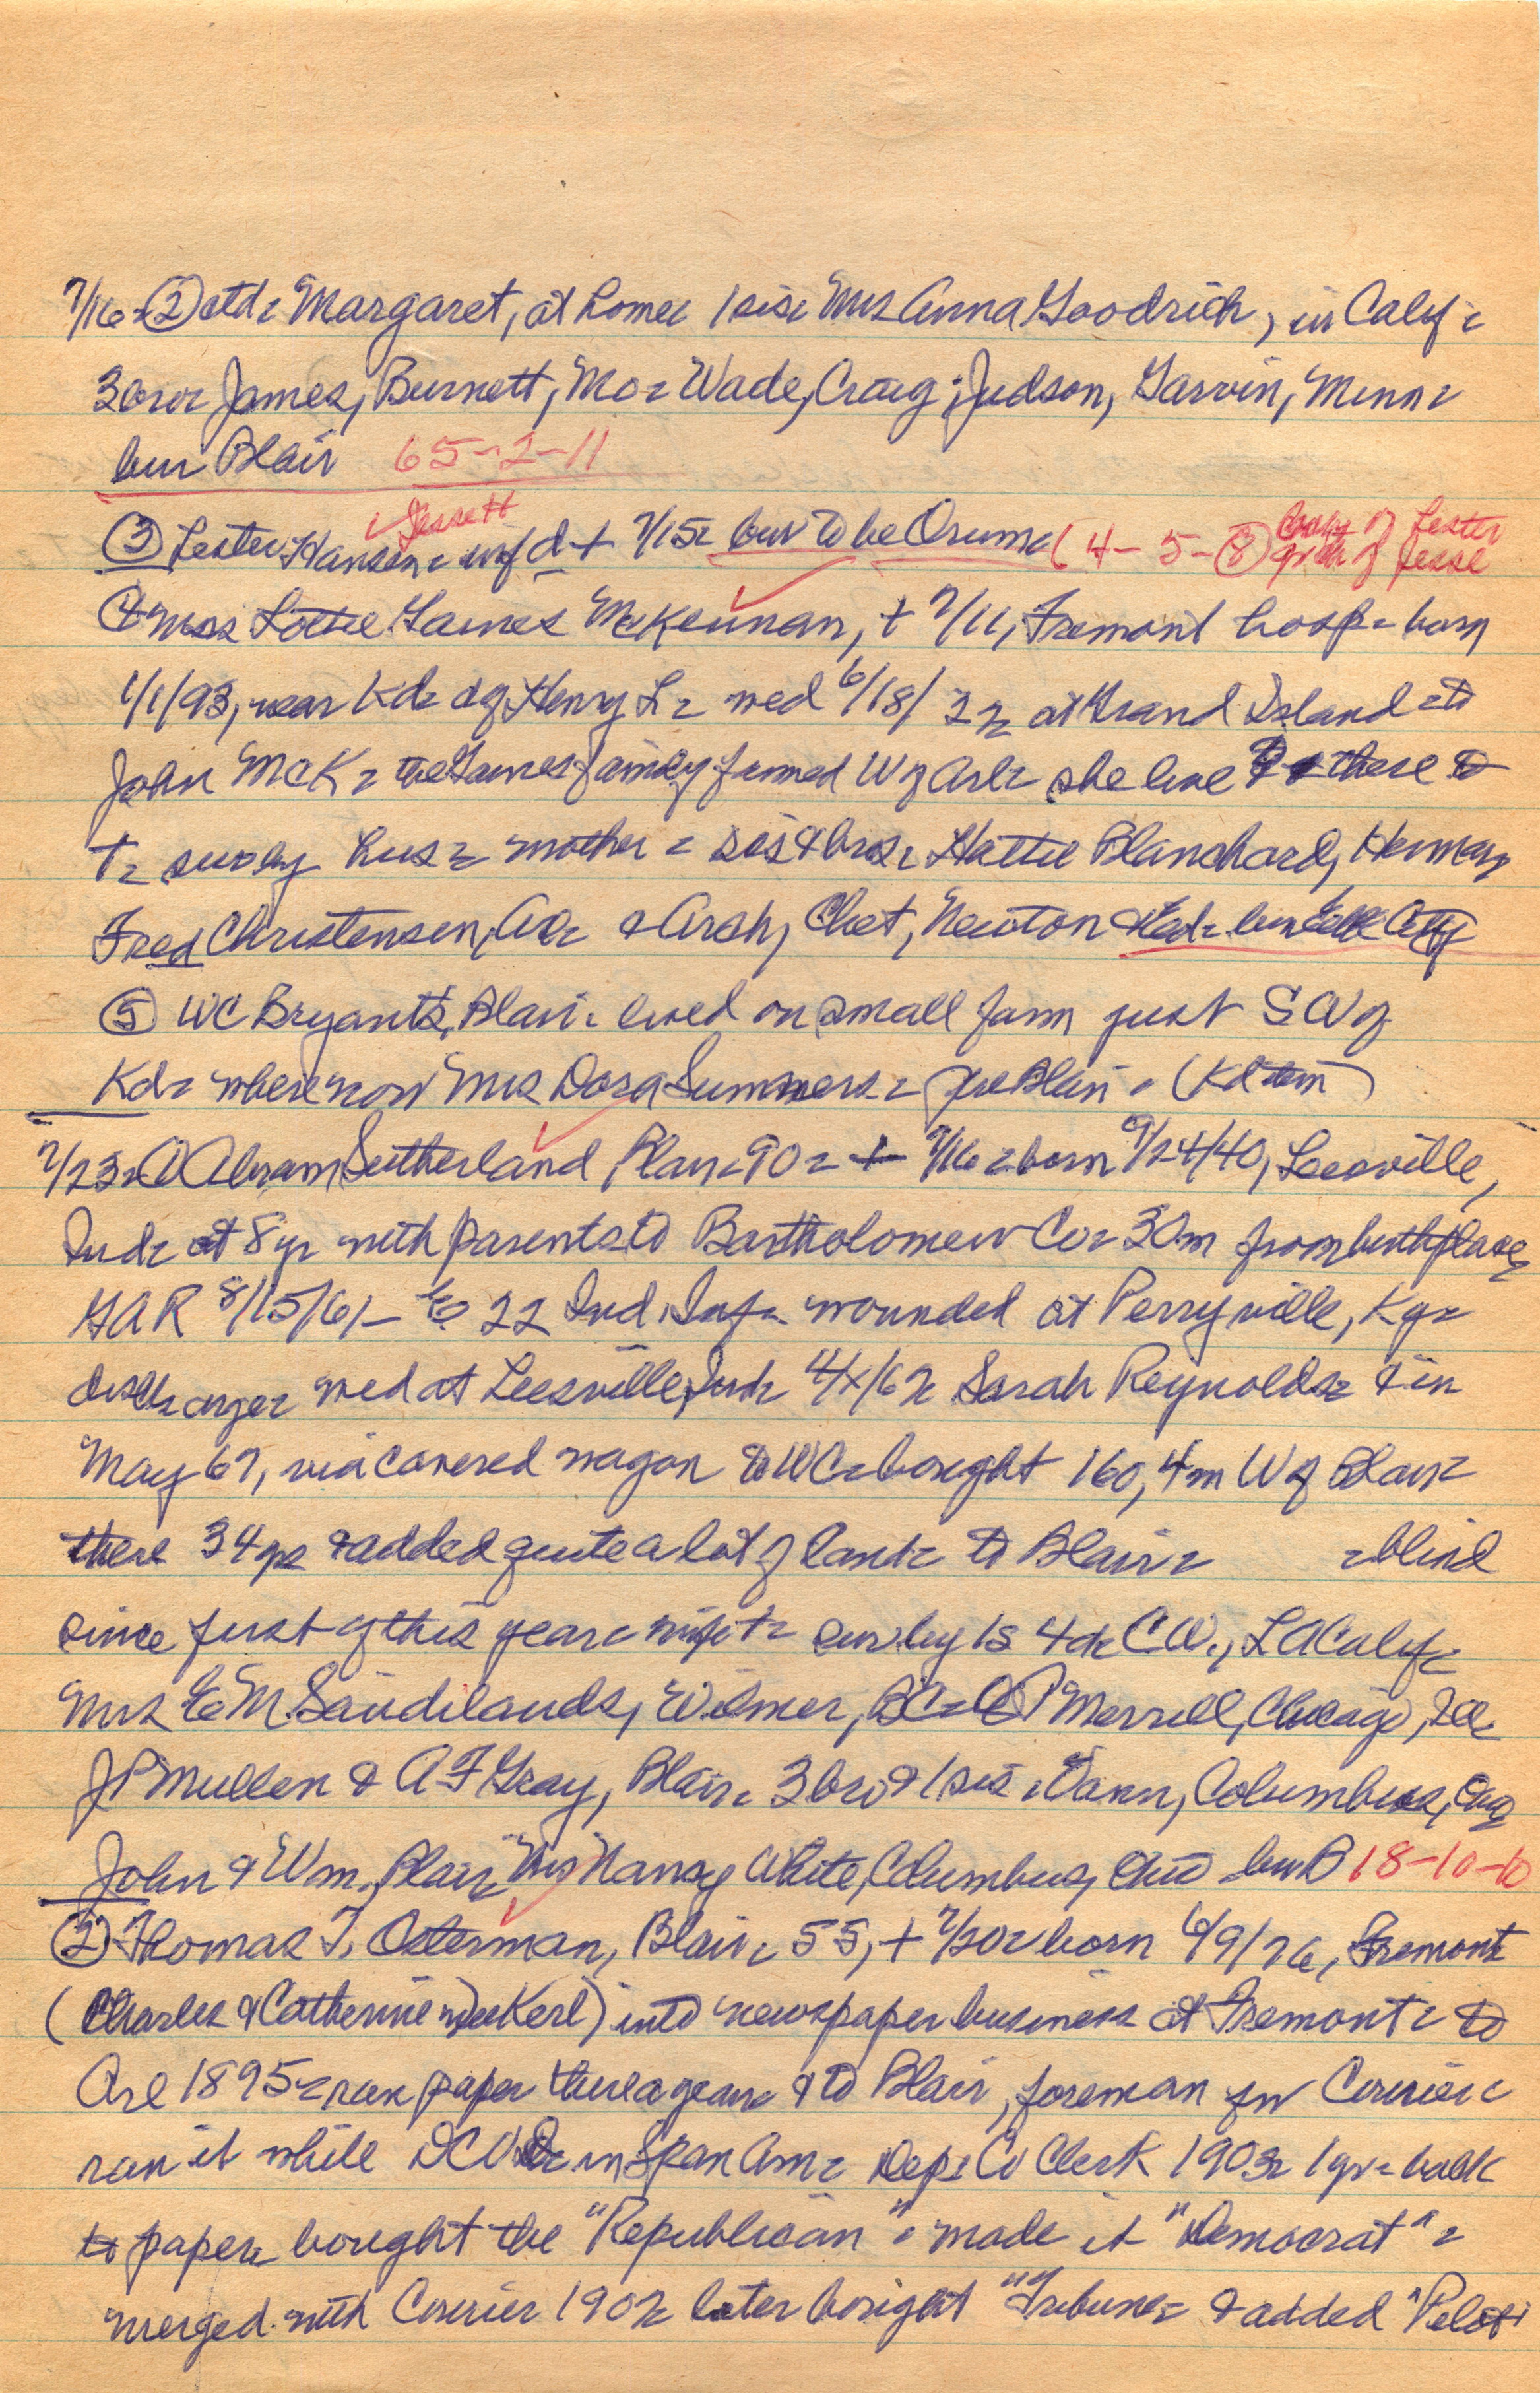 7/16 = (2) ctd = Margaret, at home = 1 sis = Mrs Anna Goodrich, in Calif =
3 bro = James, Burnett, Mo = Wade, Craig; Judson, Garvin, Minn =
bur Blair 65-2-11
Jessett
(3) Lester Hansen = inf d + 7/15 = bur to be Orum = (4-5-(8) of Lester
of Jesse
(4) Mrs Lottie Gaines McKennan, + 7/11, Fremont hosp = born
1/1/93, near Kd = dg Henry L = wed 6/18/ at Grand Island = to
John McK = the Gaines family farmed W of Arl = she live there to
+ = surv by hus = mother = sis & bros = Hattie Blanchard, Herman
Fred Christensen, Arl = & Arch, Chet, Newton & Ted = bur Elk City
(5) WC Bryants, Blair = lived on small farm just SW of
Kd = where now Mrs Dora Summers = to Blair = (Kd tem)
7/23 = (1) Abram Sutherland, Blair = 90 = + 7/16 = born 9/24/40, Leesville,
Ind = at 8 yr with parents to Bartholomew Co = 30 m from birthplace =
GAR 8/15/61 - E 22 Ind. Inf = wounded at Perryville, Ky =
discharge = wed at Leesville, Ind = 4/x/62 = Sarah Reynolds = & in
May 67, via covered wagon to WC = bought 160, 4 m W of Blair =
there 34 yr & added quite a lot of land = to Blair = = blind
since first of this year = wife + = surv by 1 s 4 d = C W., LA Calif =
Mrs E M Sandilands, Wilmer, BC = Merrell, Chicago, Ill =
J P Mullen & A F Gray, Blair = 3 bro & 1 sis = Columbus,
John & Wm, Blair = Mrs Nancy White, Columbus, bur B 18-10-10
(2) Thomas T. Osterman, Blair = 55, + 7/20 = born 6/9/76, Fremont
(Charles & Catherine ) into newspaper business at Fremont = to
Arl 1895 = ran paper there a year = & to Blair, foreman for Courier =
ran it while in Span Am = Dep. Co Clerk 1903 = 1 yr = back
to paper = bought the "Republican" = made it "Democrat" =
merged with Courier 1907 = later bought "Tribune = & added "Pilot